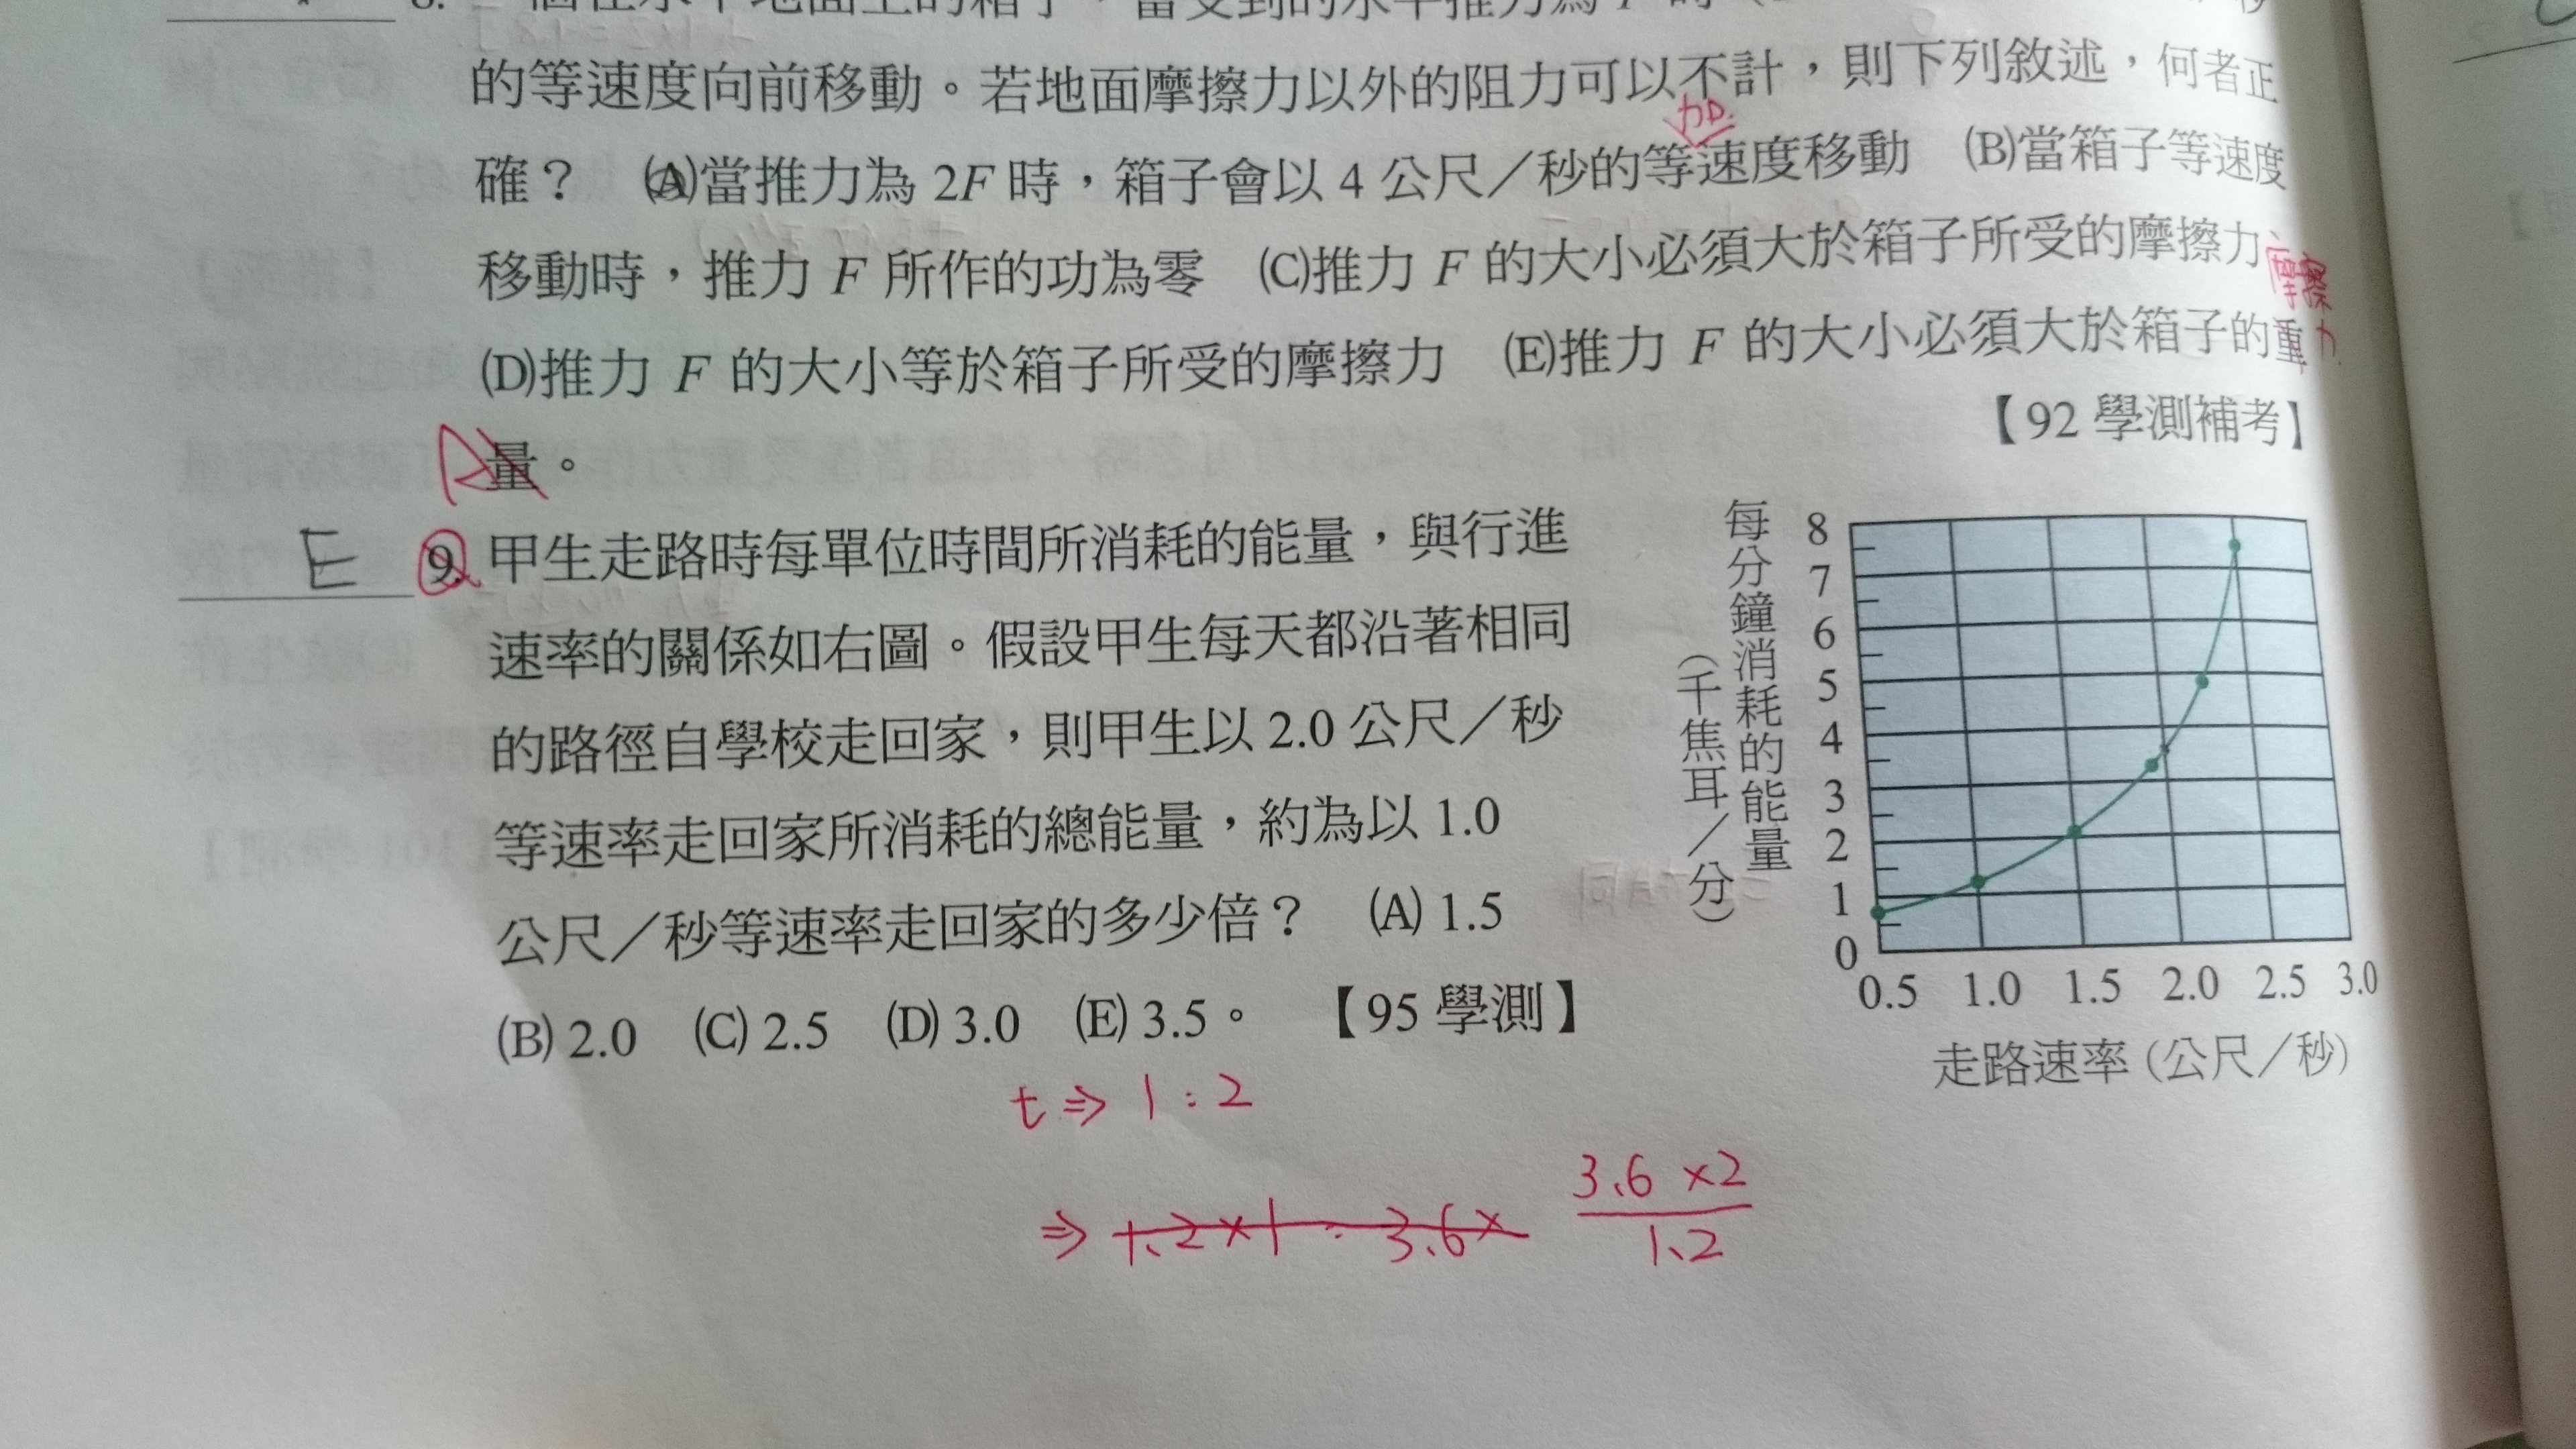 的等速度向前移動。若地面摩擦力以外的阻力可以不計，則下列敘述，何者正
加
確？ (A)當推力為 2F 時，箱子會以 4 公尺／秒的等速度移動 (B)當箱子等速度
移動時，推力 F 所作的功為零 (C)推力 F 的大小必須大於箱子所受的摩擦力
摩擦力
(D)推力 F 的大小等於箱子所受的摩擦力 (E)推力 F 的大小必須大於箱子的重
量。
【92 學測補考】
E 9. 甲生走路時每單位時間所消耗的能量，與行進
速率的關係如右圖。假設甲生每天都沿著相同
的路徑自學校走回家，則甲生以 2.0 公尺／秒
等速率走回家所消耗的總能量，約為以 1.0
公尺／秒等速率走回家的多少倍？ (A) 1.5
(B) 2.0 (C) 2.5 (D) 3.0 (E) 3.5。 【95 學測】
每分鐘消耗的能量
（千焦耳／分）
8
7
6
5
4
3
2
1
0
0.5 1.0 1.5 2.0 2.5 3.0
走路速率（公尺／秒）
t ⇒ 1 : 2
⇒ 1.2 × 1 : 3.6 ×
3.6 × 2
1.2